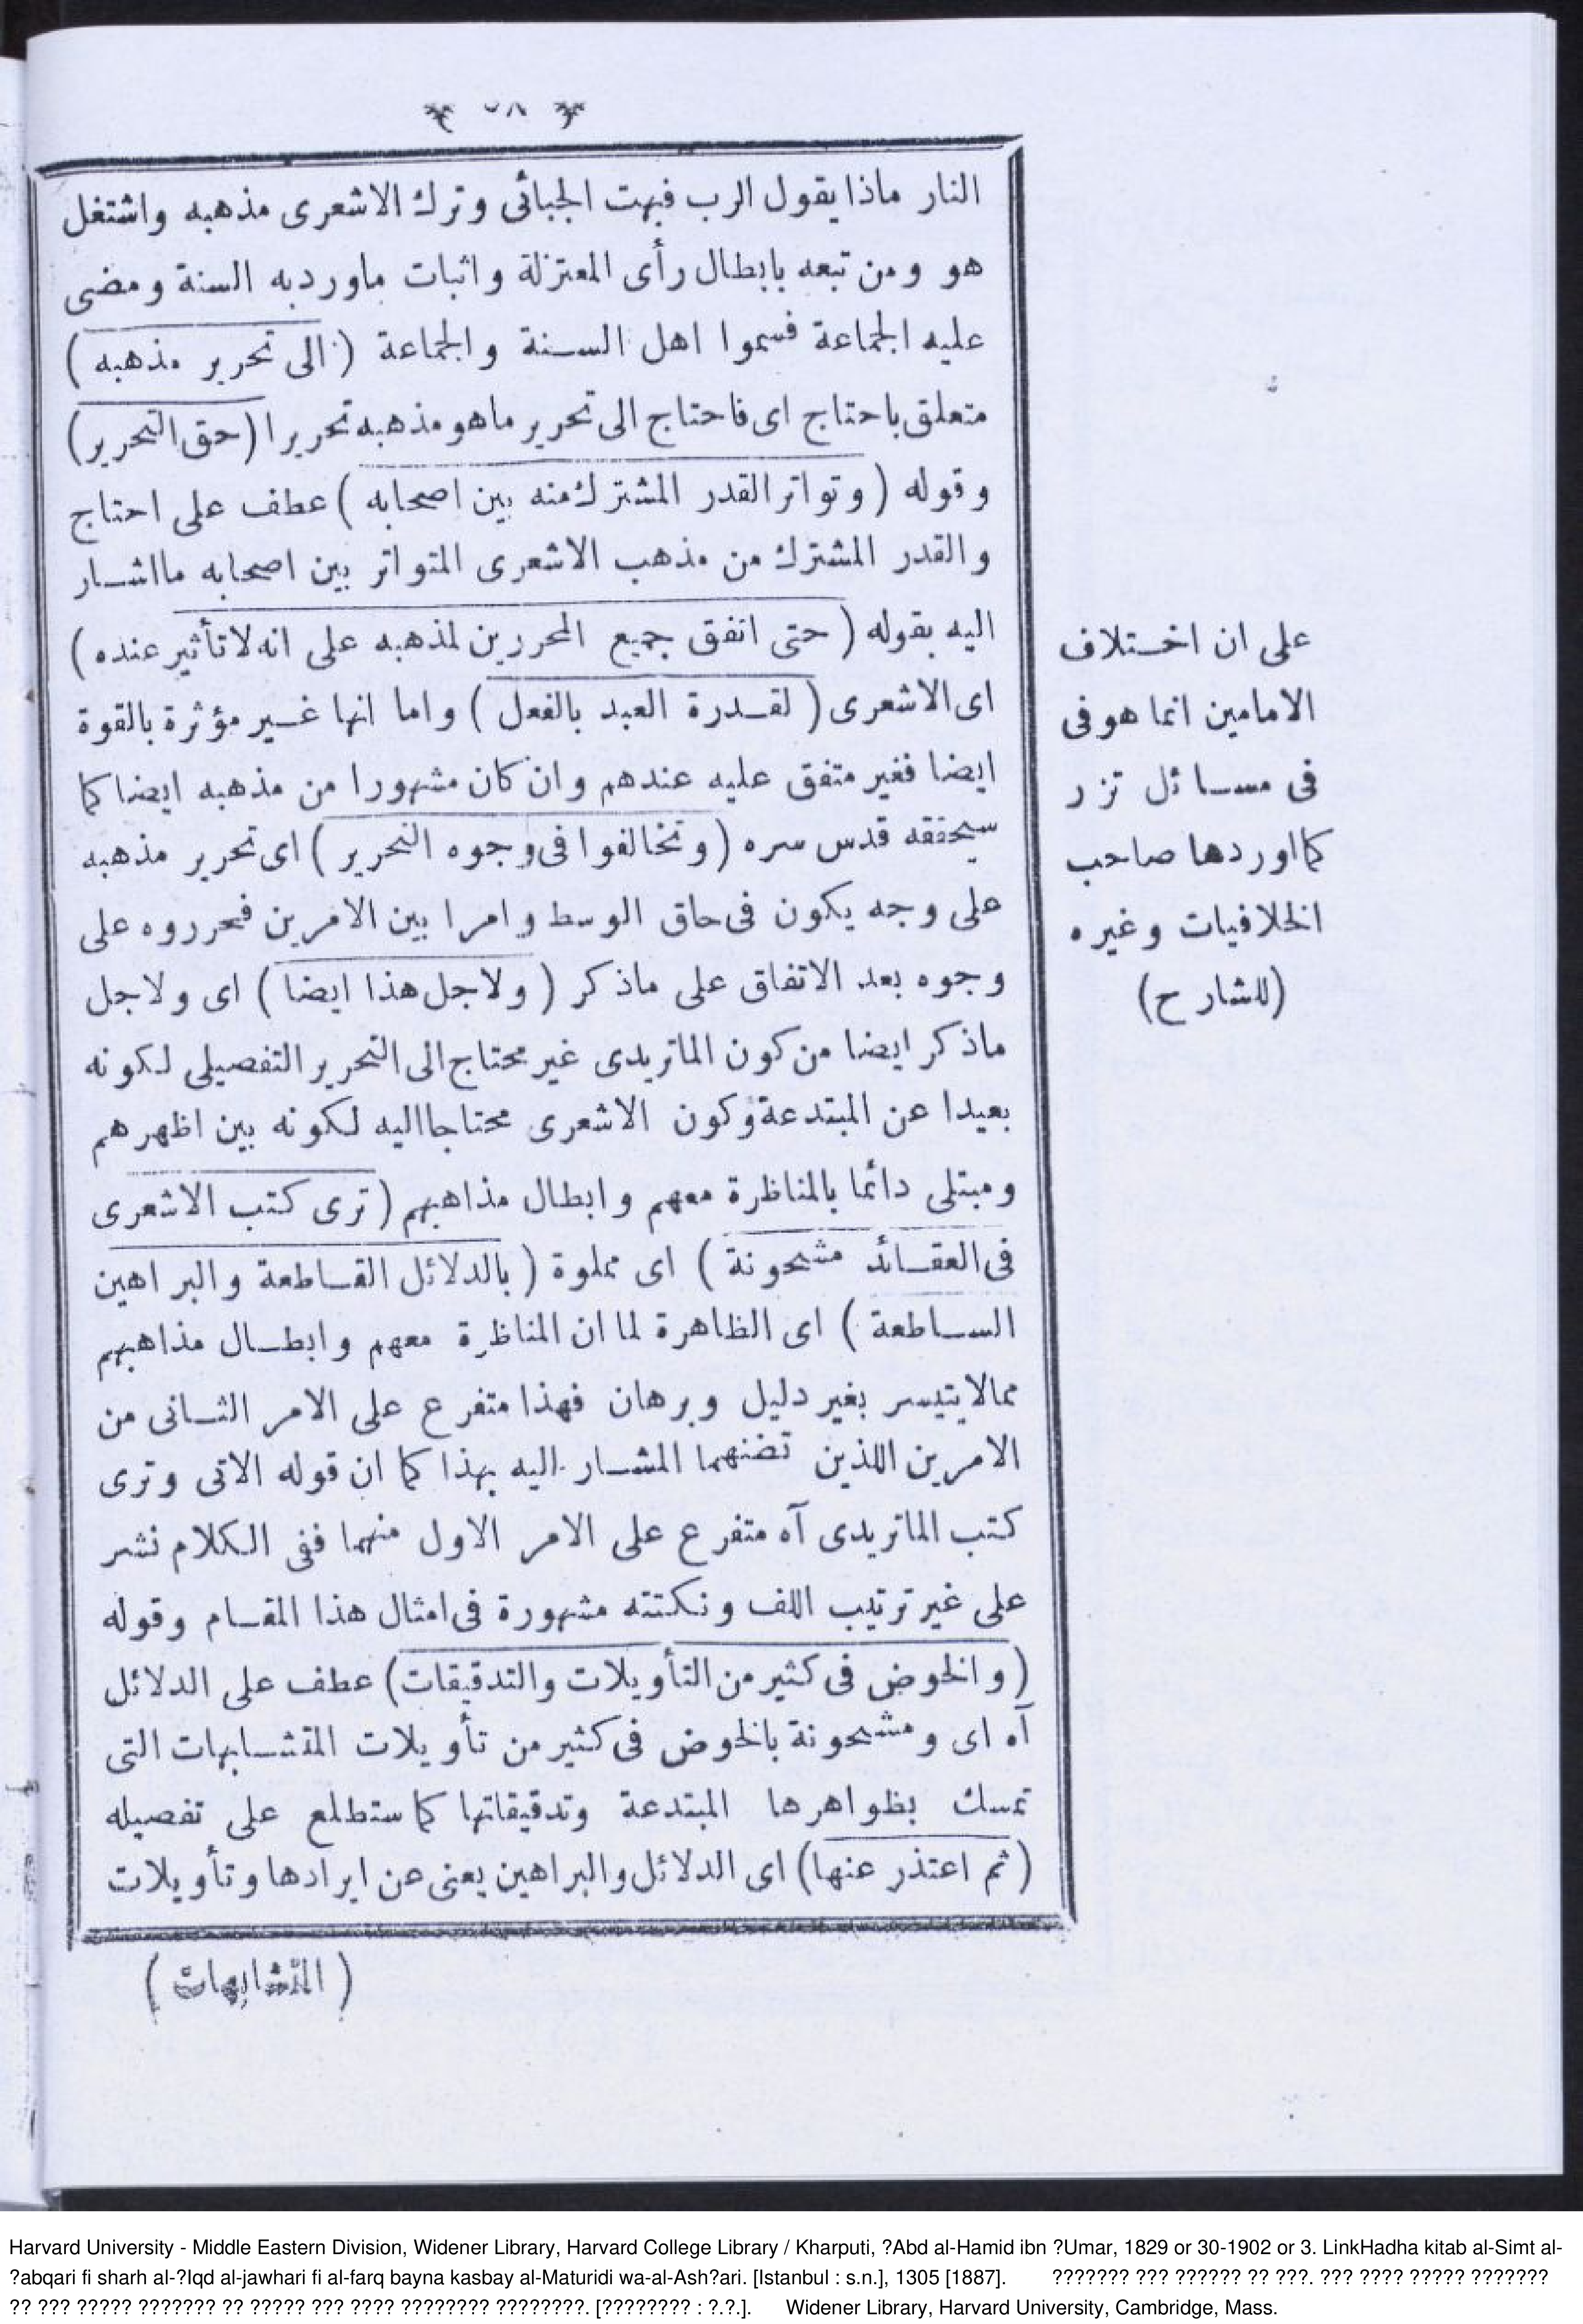 ٢٨
النار ماذا يقول الرب فبهت الجبائى وترك الاشعرى مذهبه واشتغل
هو ومن تبعه بابطال رأى المعتزلة واثبات ماورد به السنة ومضى
عليه الجماعة فسموا اهل السنة والجماعة (الى تحرير مذهبه)
متعلق باحتاج اى فاحتاج الى تحرير ماهو مذهبه تحريرا (حق التحرير)
وقوله (وتواتر القدر المشترك منه بين اصحابه) عطف على احتاج
والقدر المشترك من مذهب الاشعرى المتواتر بين اصحابه مااشار
اليه بقوله (حتى اتفق جميع المحررين لمذهبه على انه لاتأثير عنده)
اى الاشعرى (لقدرة العبد بالفعل) واما انها غير مؤثرة بالقوة
ايضا فغير متفق عليه عندهم وان كان مشهورا من مذهبه ايضا كما
سيحققه قدس سره (وتخالفوا فى وجوه التحرير) اى تحرير مذهبه
على وجه يكون فى حاق الوسط وامرا بين الامرين فحرروه على
وجوه بعد الاتفاق على ماذكر (ولاجل هذا ايضا) اى ولاجل
ماذكر ايضا من كون الماتريدى غير محتاج الى التحرير التفصيلى لكونه
بعيدا عن المبتدعة وكون الاشعرى محتاجا اليه لكونه بين اظهرهم
ومبتلى دائما بالمناظرة معهم وابطال مذاهبهم (ترى كتب الاشعرى
فى العقائد مشحونة) اى مملوة (بالدلائل القاطعة والبراهين
الساطعة) اى الظاهرة لما ان المناظرة معهم وابطال مذاهبهم
ممالايتيسر بغير دليل وبرهان فهذا متفرع على الامر الثانى من
الامرين اللذين تضمنهما المشار اليه بهذا كما ان قوله الاتى وترى
كتب الماتريدى آه متفرع على الامر الاول منهما ففى الكلام نشر
على غير ترتيب اللف ونكتته مشهورة فى امثال هذا المقام وقوله
(والخوض فى كثير من التأويلات والتدقيقات) عطف على الدلائل
آه اى ومشحونة بالخوض فى كثير من تأويلات المتشابهات التى
تمسك بظواهرها المبتدعة وتدقيقاتها كما ستطلع على تفصيله
(ثم اعتذر عنها) اى الدلائل والبراهين يعنى عن ايرادها وتأويلات
(المتشابهات)
على ان اختلاف
الامامين انما هو فى
فى مسائل نزر
كما اوردها صاحب
الخلافيات وغيره
(للشارح)
Harvard University - Middle Eastern Division, Widener Library, Harvard College Library / Kharputi, ?Abd al-Hamid ibn ?Umar, 1829 or 30-1902 or 3. LinkHadha kitab al-Simt al-
?abqari fi sharh al-?Iqd al-jawhari fi al-farq bayna kasbay al-Maturidi wa-al-Ash?ari. [Istanbul : s.n.], 1305 [1887]. ??????? ??? ?????? ?? ???. ??? ???? ????? ???????
?? ??? ????? ??????? ?? ????? ??? ???? ???????? ????????. [???????? : ?.?.]. Widener Library, Harvard University, Cambridge, Mass.